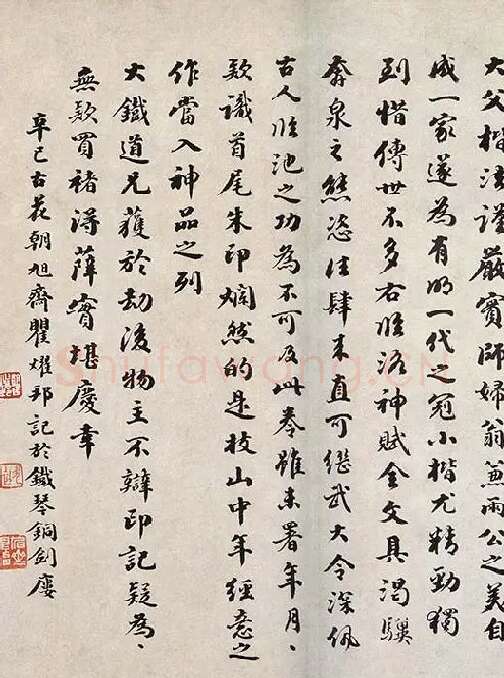 大父楷法謹嚴實師婦翁兼兩公之美自
成一家遂為有明一代之冠小楷尤精勁獨
到惜傳世不多右臨洛神賦全文具渴驥
奔泉之態恣注肆未直可繼武大令深佩
古人臨池之功為不可及此卷雖未署年月、
款識首尾朱印爛然的是枝山中年經意之
作當入神品之列
大鐵道兄獲於劫後物主不辯印記疑為、
無款買褚得薛實堪慶幸
辛巳古花朝旭齋瞿燿邦記於鐵琴銅劍廔
shufawang.CN